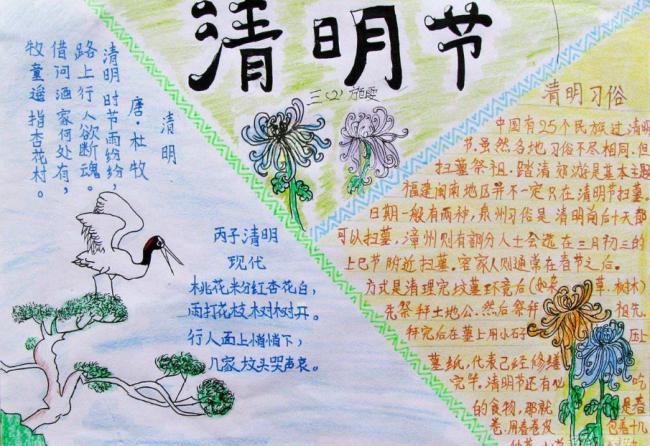 清明节
三(2)
清明
唐·杜牧
清明时节雨纷纷,
路上行人欲断魂。
借问酒家何处有,
牧童遥指杏花村。
丙子清明
现代
桃花粉红杏花白,
雨打花枝树树开。
行人面上悄悄下,
几家坟头哭声哀。
清明习俗
中国有25个民族过清明
节。虽然各地习俗不尽相同,但
扫墓祭祖、踏清郊游是基本主题
福建闽南地区并不一定只在清明节扫墓。
日期一般有两种,泉州习俗是清明前后十天都
可以扫墓,漳州则有部分人士会选在三月初三的
上巳节附近扫墓。客家人则通常在春节之后。
方式是清理完坟墓环境后(如杂草、树木)
先祭拜土地公,然后祭拜祖先.
拜完后在墓上用小石压上
墓纸,代表已经修缮
完毕。清明节还有吃
的食物,那就是春
卷.用春卷皮包着十几